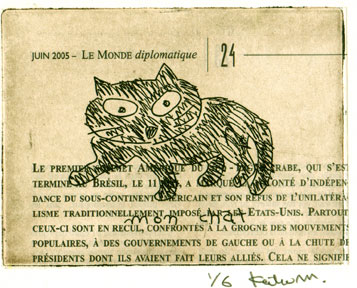 JUIN 2005 – LE MONDE diplomatique 24
LE PREMIER SOMMET AMÉRIQUE DU SUD - ARABE, QUI S'ES
TERMINÉ AU BRÉSIL, LE 11 MAI, A MARQUÉ VOLONTÉ D'INDÉPEN-
DANCE DU SOUS-CONTINENT AMÉRICAIN ET SON REFUS DE L'UNILATÉRA-
LISME TRADITIONNELLEMENT IMPOSÉ PAR LES ETATS-UNIS. PARTOUT
mon chat
CEUX-CI SONT EN RECUL, CONFRONTÉS À LA GROGNE DES MOUVEMENTS
POPULAIRES, À DES GOUVERNEMENTS DE GAUCHE OU À LA CHUTE DE
PRÉSIDENTS DONT ILS AVAIENT FAIT LEURS ALLIÉS. CELA NE SIGNIFIE
1/6